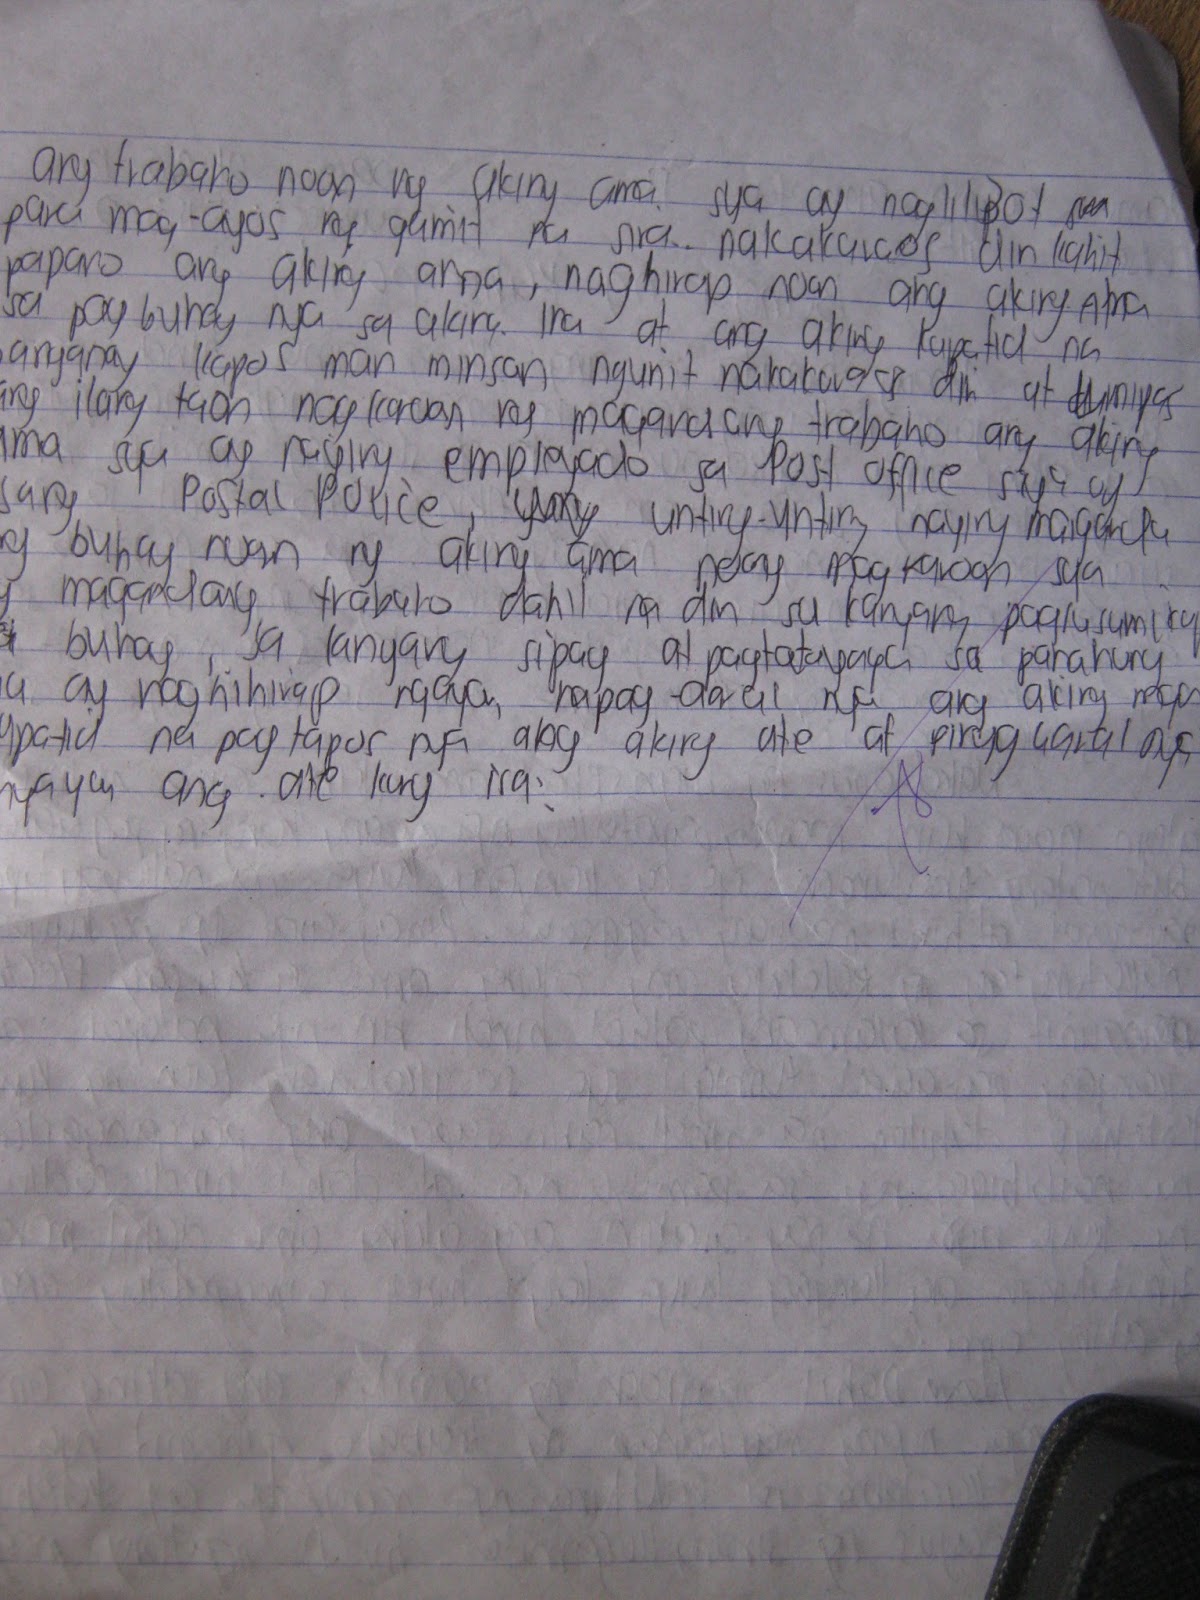 ang trabaho noon ng aking ama. sya ay naglilibot
para mag-ayos ng gamit na sira.. nakakaraos din kahit
papano ang aking ama, naghirap noon ang aking Ama
sa pagbuhay nya sa aking Ina at ang aking kapatid na
panganay kapos man minsan ngunit nakakaraos din at lumipas
ang ilang taon nagkaroon ng magandang trabaho ang aking
ama sya ay naging empleyado sa Post office siya ay
isang Postal Police, unting-unting naging maganda
ng buhay noon ng aking ama noong magkaroon sya
g magandang trabaho dahil na din sa kanyang pagsusumikap
buhay, sa kanyang sipag at pagtatyaga sa panahong
ay naghihirap ngayon napag-aral nya ang aking mga
kapatid na pagtapos nya ang aking ate at pinag aaral nya
ngayon ang ate kung isa.